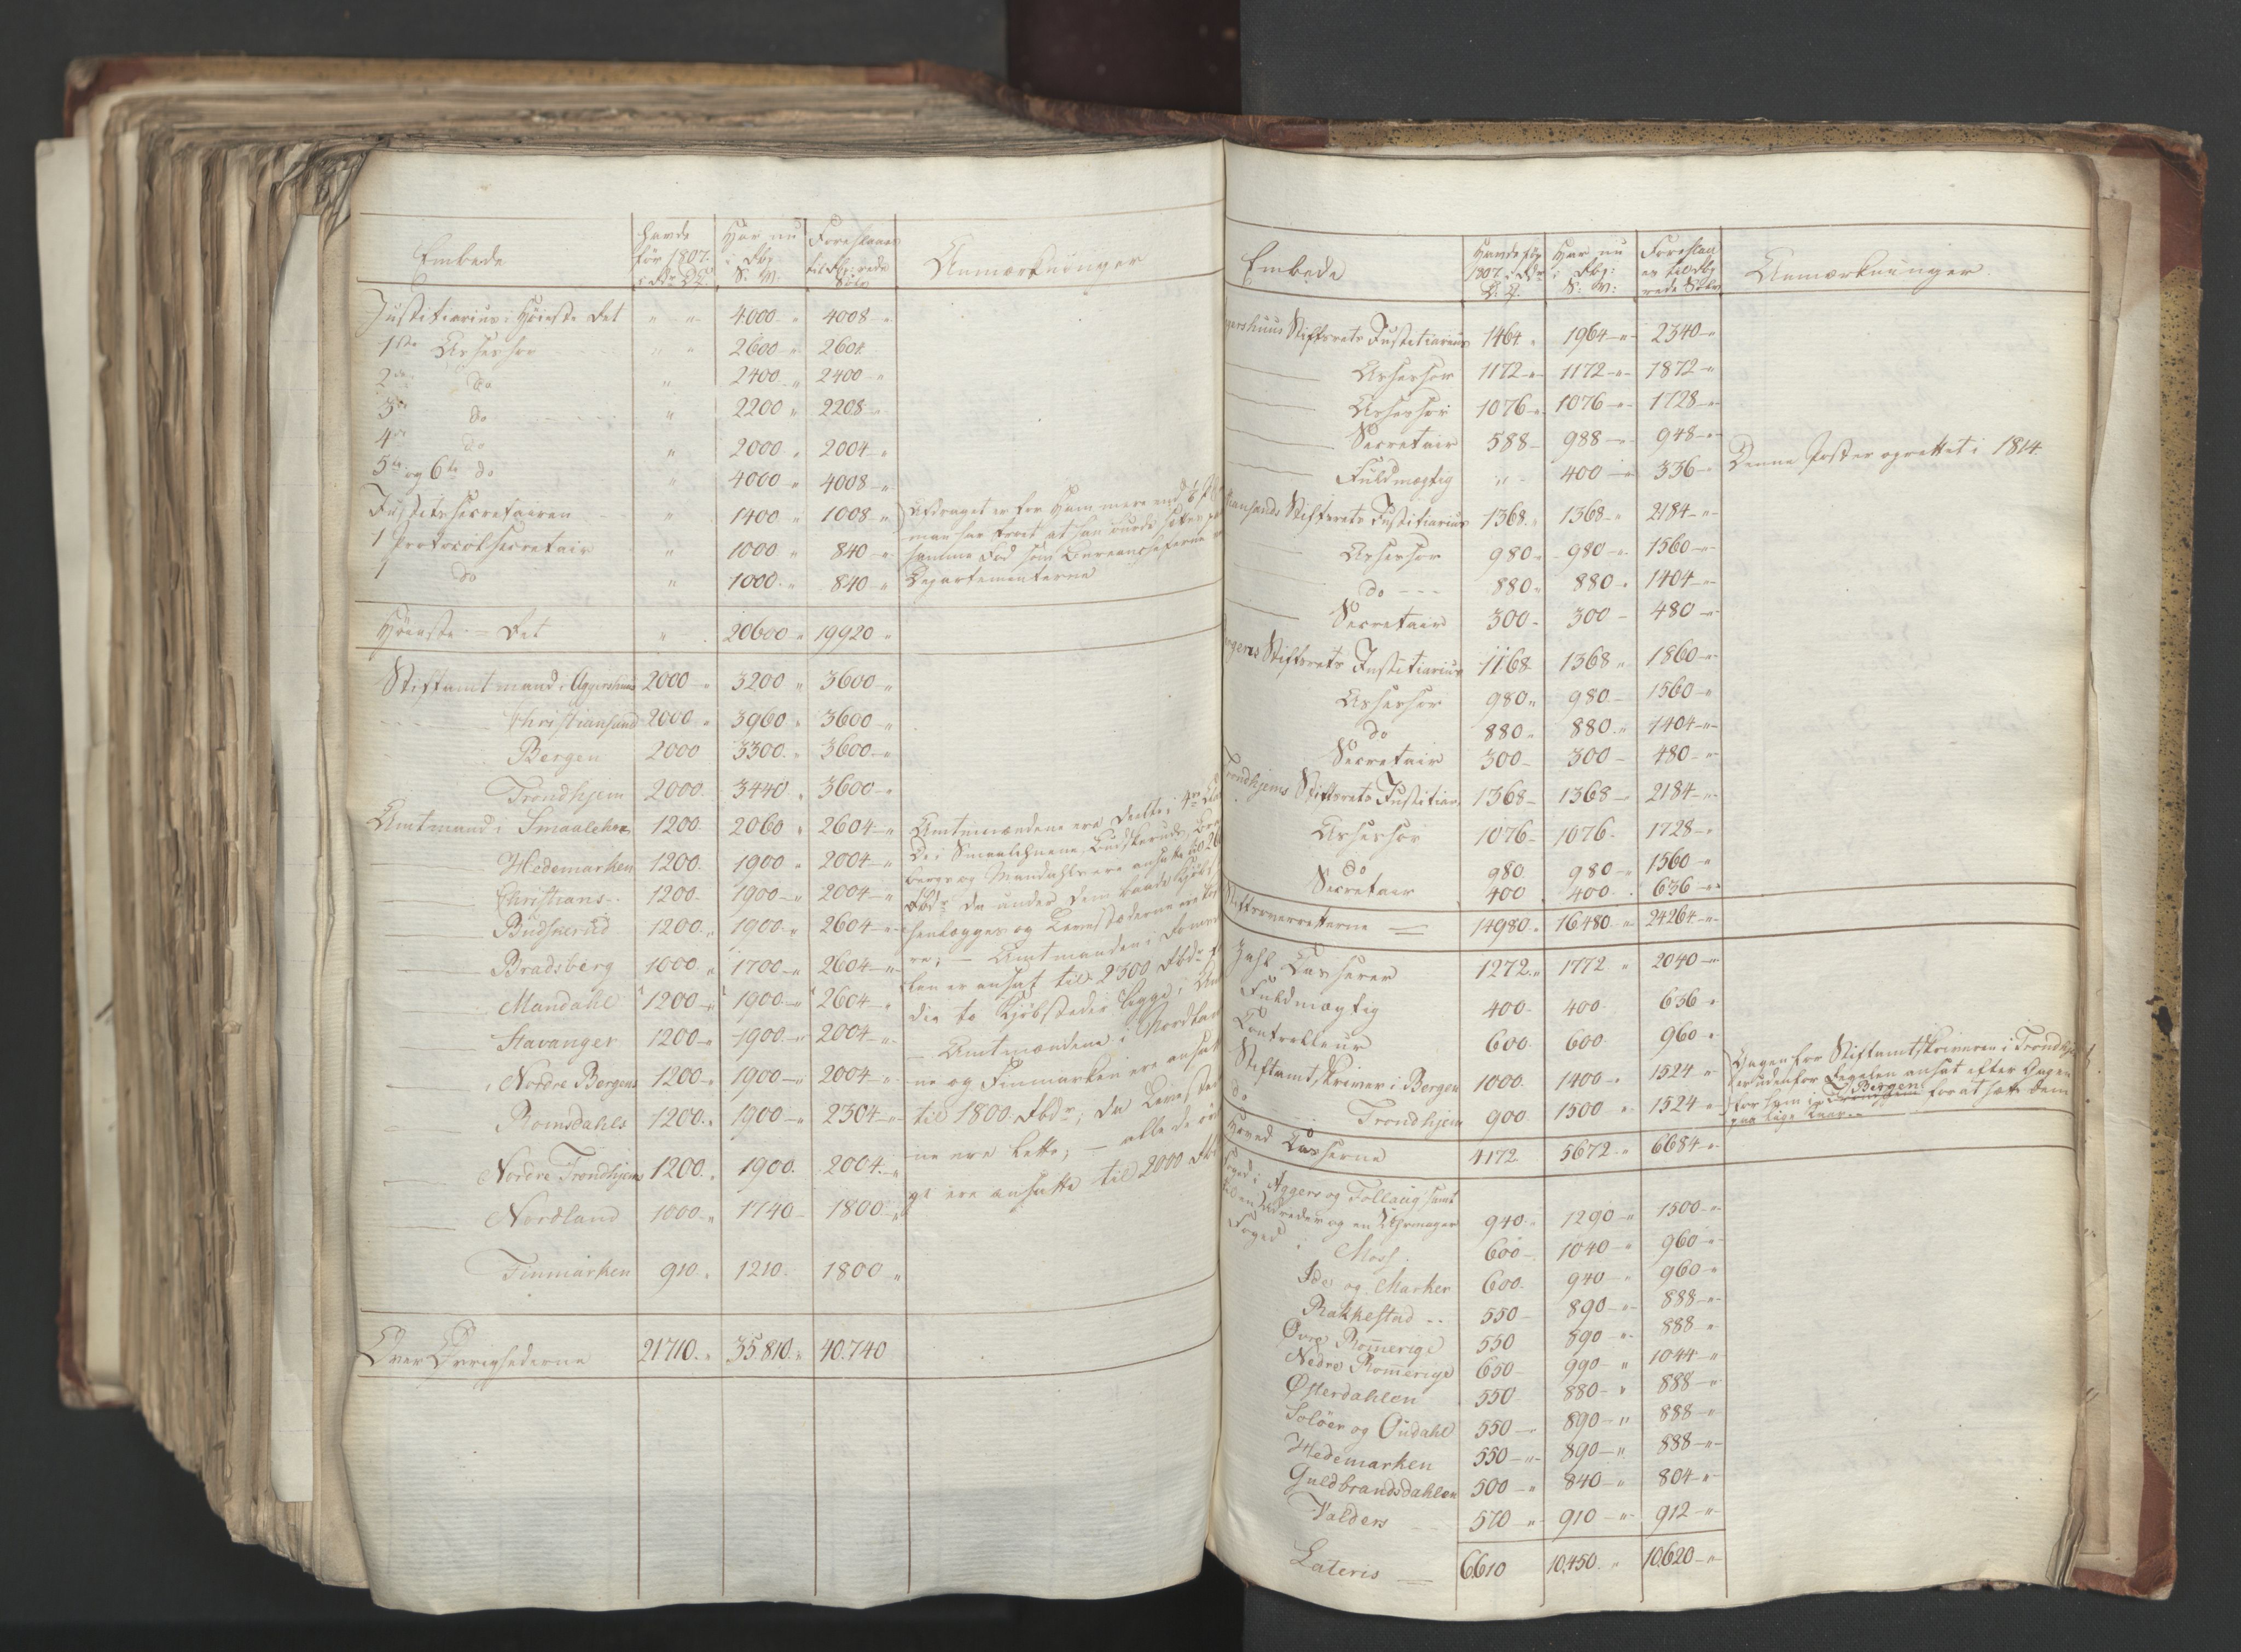 Embede | Havde før 1807. i Rdr D.C. | Har nu i Rbp. S: V: | Foreslaaes til Rbp: rede Sølv | Anmærkninger
Justitiarius i Høieste Ret " " 4000 " 4008 "
1ste Assessor " " 2600 " 2604
2de do " 2400 " 2400 "
3de do " 2200 " 2208 "
4de do " 2000 " 2004 "
5te og 6te do " 4000 " 4008 "
Justitssecretairen " 1400 " 1008 "
1 Protocolsecretair " 1000 " 840 "
1 do " 1000 " 840 "
Afdraget er for Ham mere end
man har troet at han burde sættes paa
samme Fod som Bureaucheferne i
Departementerne
Høieste = Ret " 20600 " 19920 "
Stiftamtmand i Aggershuus 2000 " 3200 " 3600 "
Christiansand 2000 " 3960 " 3600 "
Bergen 2000 3300 " 3600 "
Trondhjem 2000 3440 " 3600 "
Amtmand i Smaalehnene 1200 2060 " 2604 "
Hedemarken 1200 1900 " 2004 "
Christians 1200 1900 " 2004 "
Budskerud 1200 " 1900 " 2604 "
Bradsberg 1000 " 1700 " 2604 "
Mandahl 1200 " 1900 " 2604 "
Stavanger 1200 " 1900 " 2004 "
Nordre Bergens 1200 " 1900 " 2004 "
Romsdahls 1200 " 1900 " 2304 "
Nordre Trondhjems 1200 " 1900 2004 "
Nordland 1000 " 1740 1800 "
Finmarken 910 " 1210 1800 "
Amtmændene ere deelte i 4re
De i Smaalehnene, Budskeruds,
bergs og Mandahls ere ansatte til
Rbdr da under dem baade
henlægges og Levnetstæderne ere
re; — Amtmanden i Roms
len er ansat til 2300 Rbdr
die to Kjøbstæder ligge i
— Amtmændene i Nordlan
ne og Finmarken ere ansatte
til 1800 Rbdr; da
ne ere lette; — alle de øv
ge ere ansatte til 2000
Over Øvrighederne 21710 " 35810 " 40.740
Embede | Havde før 1807 i Rdr D.C. | Har nu i Rbp: S: V: | Foreslaaes til Rbp rede Sølv | Anmærkninger
gershuus Stiftsrets Justitiarius 1464 " 1964 " 2340 "
Assessor 1172 " 1172 " 1872 "
Assessor 1076 " 1076 " 1728 "
Secretair 588 988 " 948 "
Fuldmægtig " 400 336 " Denne Post er oprettet i 1814
tiansands Stiftsrets Justitiarius 1368 " 1368 " 2184 "
Assessor 980 " 980 " 1560 "
do 880 " 880 " 1404 "
Secretair 300 300 480 "
rgens Stiftsrets Justitiarius 1168 1368 " 1860 "
Assessor 980 " 980 1560 "
do 880 " 880 " 1404 "
Secretair 300 300 480 "
Trondhjems Stiftsrets Justitiar 1368 1368 2184 "
Assessor 1076 1076 1728 "
do 980 980 " 1560 "
Secretair 400 400 636 "
Stiftsoverretterne 14980 " 16480 " 24264 "
Zahl Casserer 1272 " 1772 " 2040 "
Fuldmægtig 400 400 636 "
Controlleur 600 600 960 "
Stiftamtskriver i Bergen 1000 1400 " 1524 "
do Trondhjem 900 1500 " 1524 "
Gagen for Stiftamtskriveren i Trondhjem
er udenfor Regelen ansat efter Gagen
for ham i Bergen Trondhjem for at sætte dem
paa lige Kaar
Hoved Casserne 4172 5672 " 6684 "
Foged i Aggers og Follaug samt
940 " 1290 " 1500 "
Foged i Moss 600 1040 " 960 "
Ide og Marker 600 940 " 960 "
Rakkestad 550 890 " 888 "
Øvre Romerige 550 890 " 888 "
Nedre Romerige 650 990 " 1044 "
Østerdahlen 550 880 " 888 "
Soløer og Oudahl 550 890 " 888 "
Hedemarken 550 " 890 " 888 "
Guldbrandsdahlen 500 " 840 " 804 "
Valders 570 " 910 " 912 "
Lateris 6610 10,450 " 10,620 "